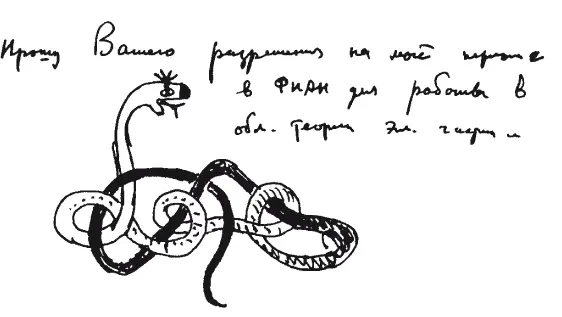 Прошу Вашего разрешения на мой переход
в ФИАН для работы в
обл. теории эл. частиц